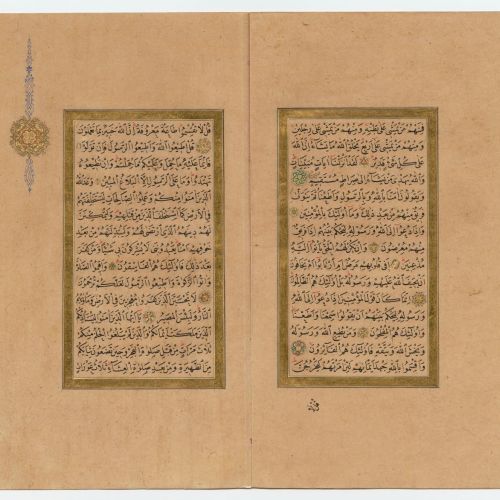 فَمِنْهُمْ مَنْ يَمْشِي عَلَى بَطْنِهِ وَمِنْهُمْ مَنْ يَمْشِي عَلَى رِجْلَيْنِ
وَمِنْهُمْ مَنْ يَمْشِي عَلَى أَرْبَعٍ يَخْلُقُ اللهُ مَا يَشَاءُ إِنَّ اللهَ
عَلَى كُلِّ شَيْءٍ قَدِيرٌ لَقَدْ أَنْزَلْنَا آيَاتٍ مُبَيِّنَاتٍ
وَاللهُ يَهْدِي مَنْ يَشَاءُ إِلَى صِرَاطٍ مُسْتَقِيمٍ
وَيَقُولُونَ آمَنَّا بِاللهِ وَبِالرَّسُولِ وَأَطَعْنَا ثُمَّ يَتَوَلَّى
فَرِيقٌ مِنْهُمْ مِنْ بَعْدِ ذَلِكَ وَمَا أُولَئِكَ بِالْمُؤْمِنِينَ
وَإِذَا دُعُوا إِلَى اللهِ وَرَسُولِهِ لِيَحْكُمَ بَيْنَهُمْ إِذَا فَرِيقٌ
مِنْهُمْ مُعْرِضُونَ وَإِنْ يَكُنْ لَهُمُ الْحَقُّ يَأْتُوا إِلَيْهِ
مُذْعِنِينَ أَفِي قُلُوبِهِمْ مَرَضٌ أَمِ ارْتَابُوا أَمْ يَخَافُونَ
أَنْ يَحِيفَ اللهُ عَلَيْهِمْ وَرَسُولُهُ بَلْ أُولَئِكَ هُمُ الظَّالِمُونَ
إِنَّمَا كَانَ قَوْلَ الْمُؤْمِنِينَ إِذَا دُعُوا إِلَى اللهِ
وَرَسُولِهِ لِيَحْكُمَ بَيْنَهُمْ أَنْ يَقُولُوا سَمِعْنَا وَأَطَعْنَا
وَأُولَئِكَ هُمُ الْمُفْلِحُونَ وَمَنْ يُطِعِ اللهَ وَرَسُولَهُ
وَيَخْشَ اللهَ وَيَتَّقْهِ فَأُولَئِكَ هُمُ الْفَائِزُونَ
وَأَقْسَمُوا بِاللهِ جَهْدَ أَيْمَانِهِمْ لَئِنْ أَمَرْتَهُمْ لَيَخْرُجُنَّ
قُلْ لَا تُقْسِمُوا طَاعَةٌ مَعْرُوفَةٌ إِنَّ اللهَ خَبِيرٌ بِمَا تَعْمَلُونَ
قُلْ أَطِيعُوا اللهَ وَأَطِيعُوا الرَّسُولَ فَإِنْ تَوَلَّوْا
فَإِنَّمَا عَلَيْهِ مَا حُمِّلَ وَعَلَيْكُمْ مَا حُمِّلْتُمْ وَإِنْ تُطِيعُوهُ
تَهْتَدُوا وَمَا عَلَى الرَّسُولِ إِلَّا الْبَلَاغُ الْمُبِينُ وَعَدَ اللهُ
الَّذِينَ آمَنُوا مِنْكُمْ وَعَمِلُوا الصَّالِحَاتِ لَيَسْتَخْلِفَنَّهُمْ
فِي الْأَرْضِ كَمَا اسْتَخْلَفَ الَّذِينَ مِنْ قَبْلِهِمْ وَلَيُمَكِّنَنَّ
لَهُمْ دِينَهُمُ الَّذِي ارْتَضَى لَهُمْ وَلَيُبَدِّلَنَّهُمْ مِنْ بَعْدِ
خَوْفِهِمْ أَمْنًا يَعْبُدُونَنِي لَا يُشْرِكُونَ بِي شَيْئًا وَمَنْ كَفَرَ
بَعْدَ ذَلِكَ فَأُولَئِكَ هُمُ الْفَاسِقُونَ وَأَقِيمُوا الصَّلَوةَ
وَآتُوا الزَّكَوةَ وَأَطِيعُوا الرَّسُولَ لَعَلَّكُمْ تُرْحَمُونَ
لَا تَحْسَبَنَّ الَّذِينَ كَفَرُوا مُعْجِزِينَ فِي الْأَرْضِ وَمَأْوَيهُمُ
النَّارُ وَلَبِئْسَ الْمَصِيرُ يَا أَيُّهَا الَّذِينَ آمَنُوا لِيَسْتَأْذِنْكُمُ
الَّذِينَ مَلَكَتْ أَيْمَانُكُمْ وَالَّذِينَ لَمْ يَبْلُغُوا الْحُلُمَ مِنْكُمْ
ثَلَاثَ مَرَّاتٍ مِنْ قَبْلِ صَلَوةِ الْفَجْرِ وَحِينَ تَضَعُونَ ثِيَابَكُمْ
مِنَ الظَّهِيرَةِ وَمِنْ بَعْدِ صَلَوةِ الْعِشَاءِ ثَلَاثُ عَوْرَاتٍ